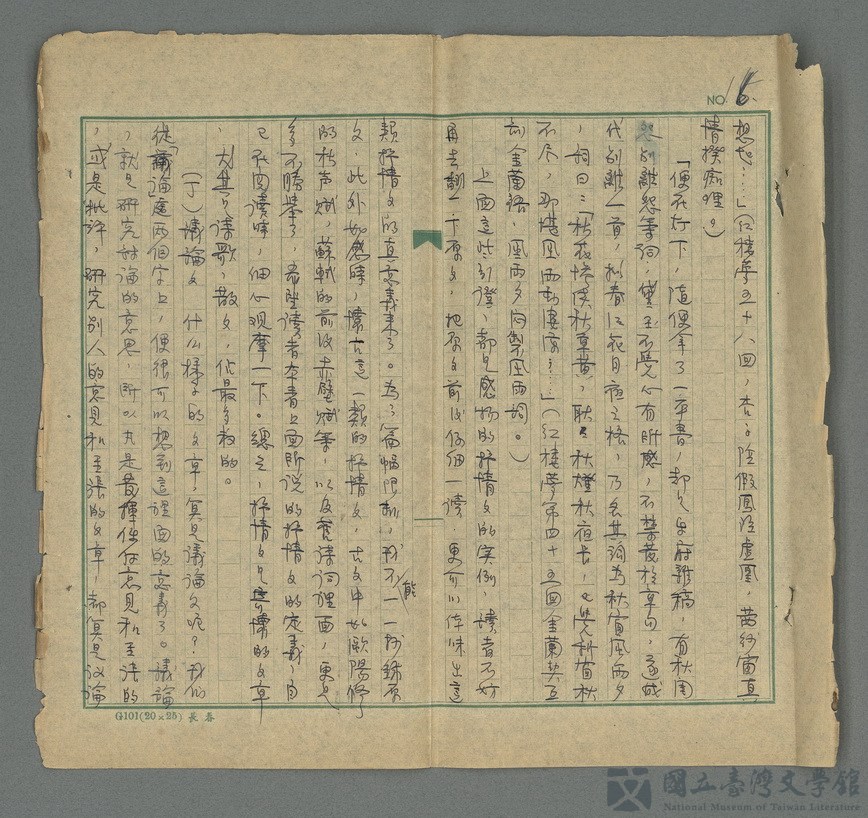 NO 16.
想起……」(紅樓夢五十八回,杏子陰假鳳泣虛凰,茜紗窗真
情揆痴理。)
「便在灯下,隨便拿了一本書,却是樂府雜稿,有秋閨
怨別離怨等詞,黛玉不覺心有所感,不禁發於章句,遂成
代別離一首,擬春江花月夜之格,乃名其詞為秋窗風雨夕
,詞曰:「秋花慘淡秋草黃,耿耿秋燈秋夜長,已覺秋窗秋
不尽,那堪風雨助淒涼!……」(紅樓夢第四十五回金蘭契互
剖金蘭語,風雨夕悶製風雨詞。)
上面這些引證,都是感物的抒情文的実例,讀者不妨
再去翻一下原文,把原文前後仔細一讀 更可以体味出這
類抒情文的真意義来了。為了篇幅限制,我不能一一抄錄原
文,此外如感時,懷古這一類的抒情文,古文中如歐陽修
的秋声賦,蘇軾的前後赤壁賦等,以及舊詩詞裡面,更是
多不勝舉了,希望讀者本着上面所說的抒情文的定義,自
己在閱讀時,細心观摩一下。總之,抒情文是 的文章
,尤其以詩歌,散文,佔最多数的。
(丁)議論文 什么樣子的文章,算是議論文呢?我們
從「議論」這两個字上,便很可以想到這裡面的意義了。議論
,就是研究討論的意思,所以凡是發揮任何意見和主張的
,或是批評,研究別人的意見和主張的文章,都算是议論
G101(20×25)長春
國立臺灣文學館
National Museum of Taiwan Literature